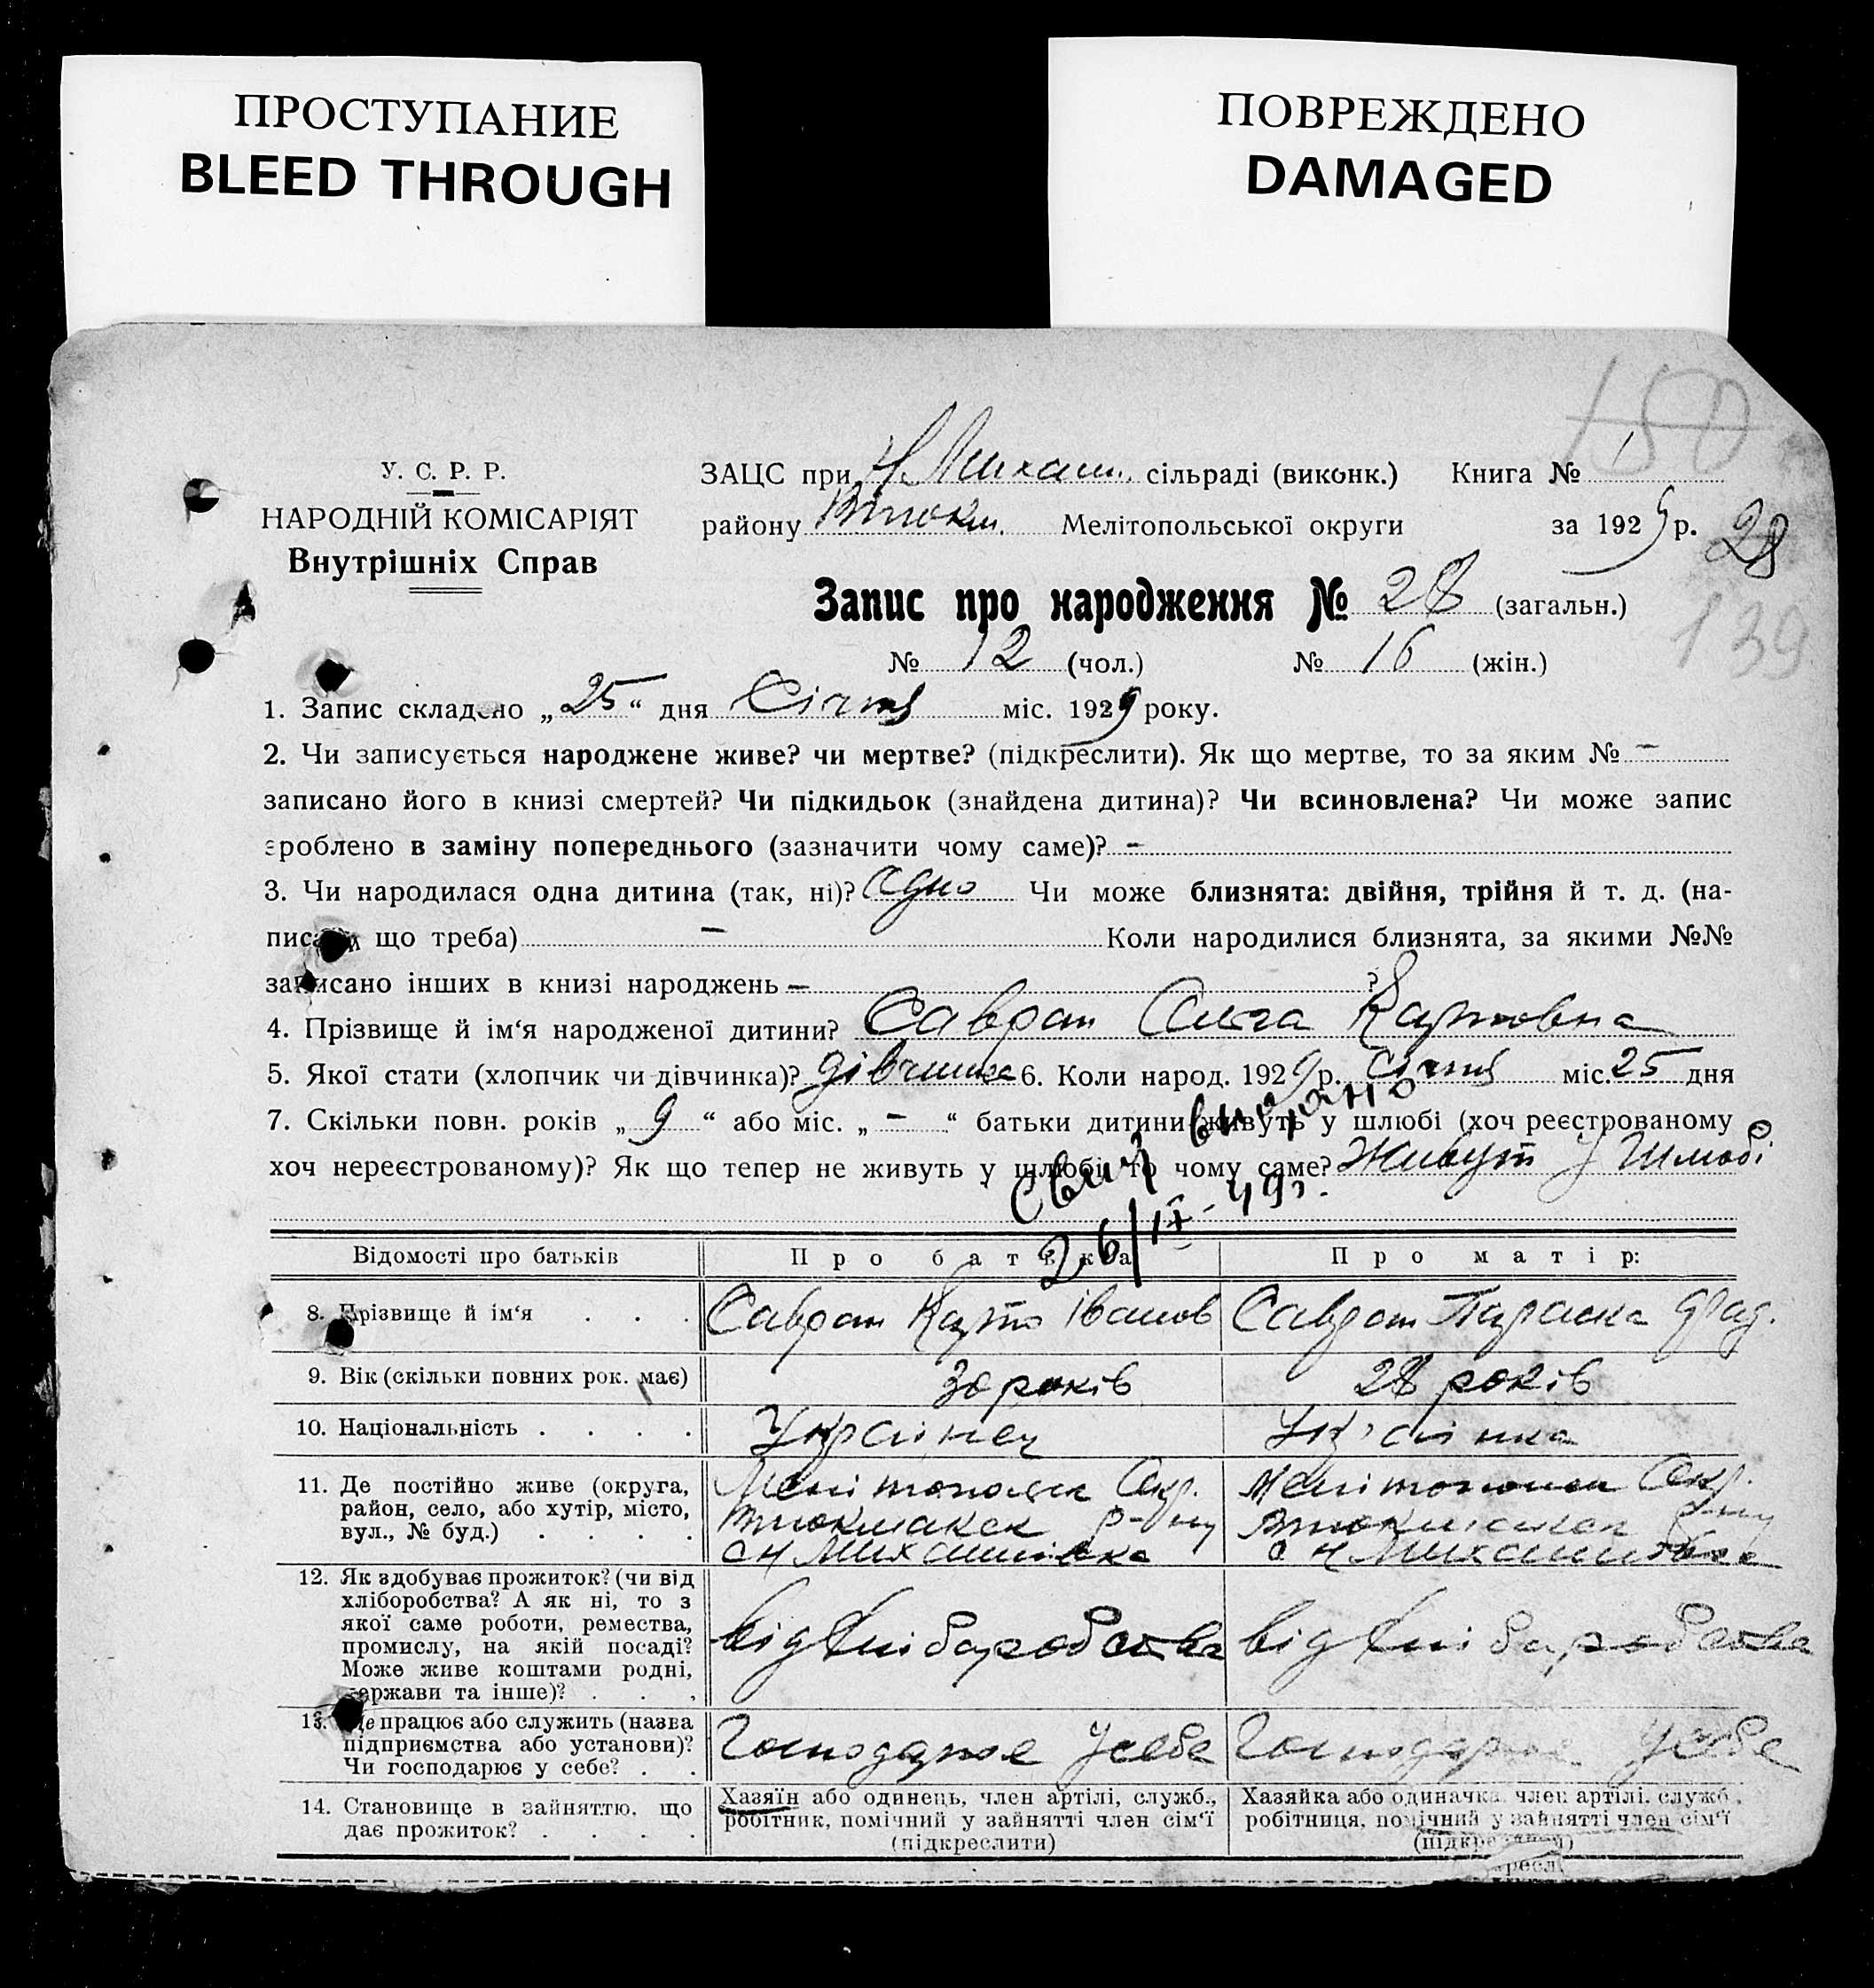 ПРОСТУПАНИЕ
BLEED THROUGH
ПОВРЕЖДЕНО
DAMAGED
150
У. С. Р. Р.
НАРОДНІЙ КОМІСАРІЯТ
Внутрішніх Справ
ЗАЦС при Н Михайл. сільраді (виконк.) Книга № 1
району Втокм. Мелітопольської округи за 1929 р. 28
Запис про народження № 28 (загальн.)
139
№ 12 (чол.) № 16 (жін.)
1. Запис складено „25“ дня Січня міс. 1929 року.
2. Чи записується народжене живе? чи мертве? (підкреслити). Як що мертве, то за яким № –
записано його в книзі смертей? Чи підкидьок (знайдена дитина)? Чи всиновлена? Чи може запис
зроблено в заміну попереднього (зазначити чому саме)? –
3. Чи народилася одна дитина (так, ні)? Одно Чи може близнята: двійня, трійня й т. д. (на-
писати що треба) – Коли народилися близнята, за якими №№
записано інших в книзі народжень – ?
4. Прізвище й ім‘я народженої дитини? Савран Ольга Карповна
5. Якої стати (хлопчик чи дівчинка)? дівчинка 6. Коли народ. 1929 р. січня міс. 25 дня
7. Скільки повн. років „9“ або міс. „–“ батьки дитини живуть у шлюбі (хоч реєстрованому
хоч нереєстрованому)? Як що тепер не живуть у шлюбі, то чому саме? Живут у Шлюбі
Свид выдано
26/IX-49г.
Відомості про батьків Про батька Про матір:
8. Прізвище й ім‘я . . . Савран Карпо Іванов Савран Параска
9. Вік (скільки повних рок. має) 30 років 28 років
10. Національність . . . . Українец Українка
11. Де постійно живе (округа,
район, село, або хутір, місто,
вул., № буд.) . . . .
Мелітопольск Окр.
Втокмакск р-ну
с Н Михайлівка
Мелітопольск Окр.
Втокмакск р-ну
с Н Михайлівка
12. Як здобуває прожиток? (чи від
хліборобства? А як ні, то з
якої саме роботи, ремества,
промислу, на якій посаді?
Може живе коштами родні,
держави та інше)? . . .
від хліборобства від хліборобства
13. Де працює або служить (назва
підприємства або установи)?
Чи господарює у себе? . .
Господарює у себе Господарює у себе
14. Становище в зайняттю, що
дає прожиток? . . . .
Хазяїн або одинець, член артілі, служб.,
робітник, помічний у зайнятті член сім‘ї
(підкреслити)
Хазяйка або одиначка, член артілі, служб.,
робітниця, помічний у зайнятті член сім‘ї
(підкреслити)